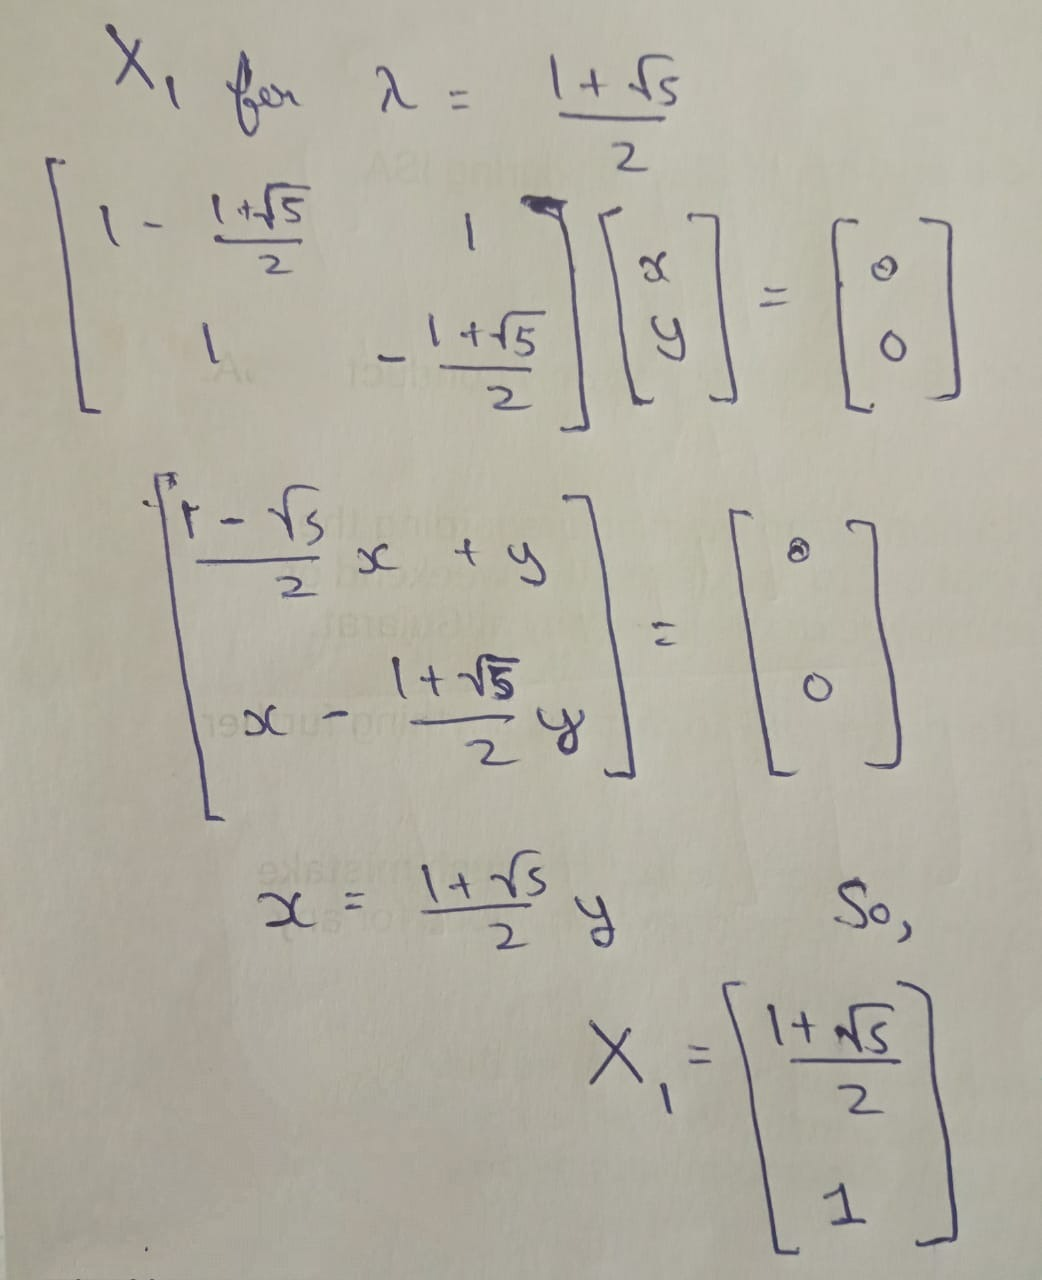 X₁ for λ = (1 + √5)/2
[1 - (1+√5)/2   1; 1   - (1+√5)/2] [x; y] = [0; 0]
[(1 - √5)/2 x + y; x - (1+√5)/2 y] = [0; 0]
x = (1+√5)/2 y   So,
X₁ = [(1+√5)/2; 1]